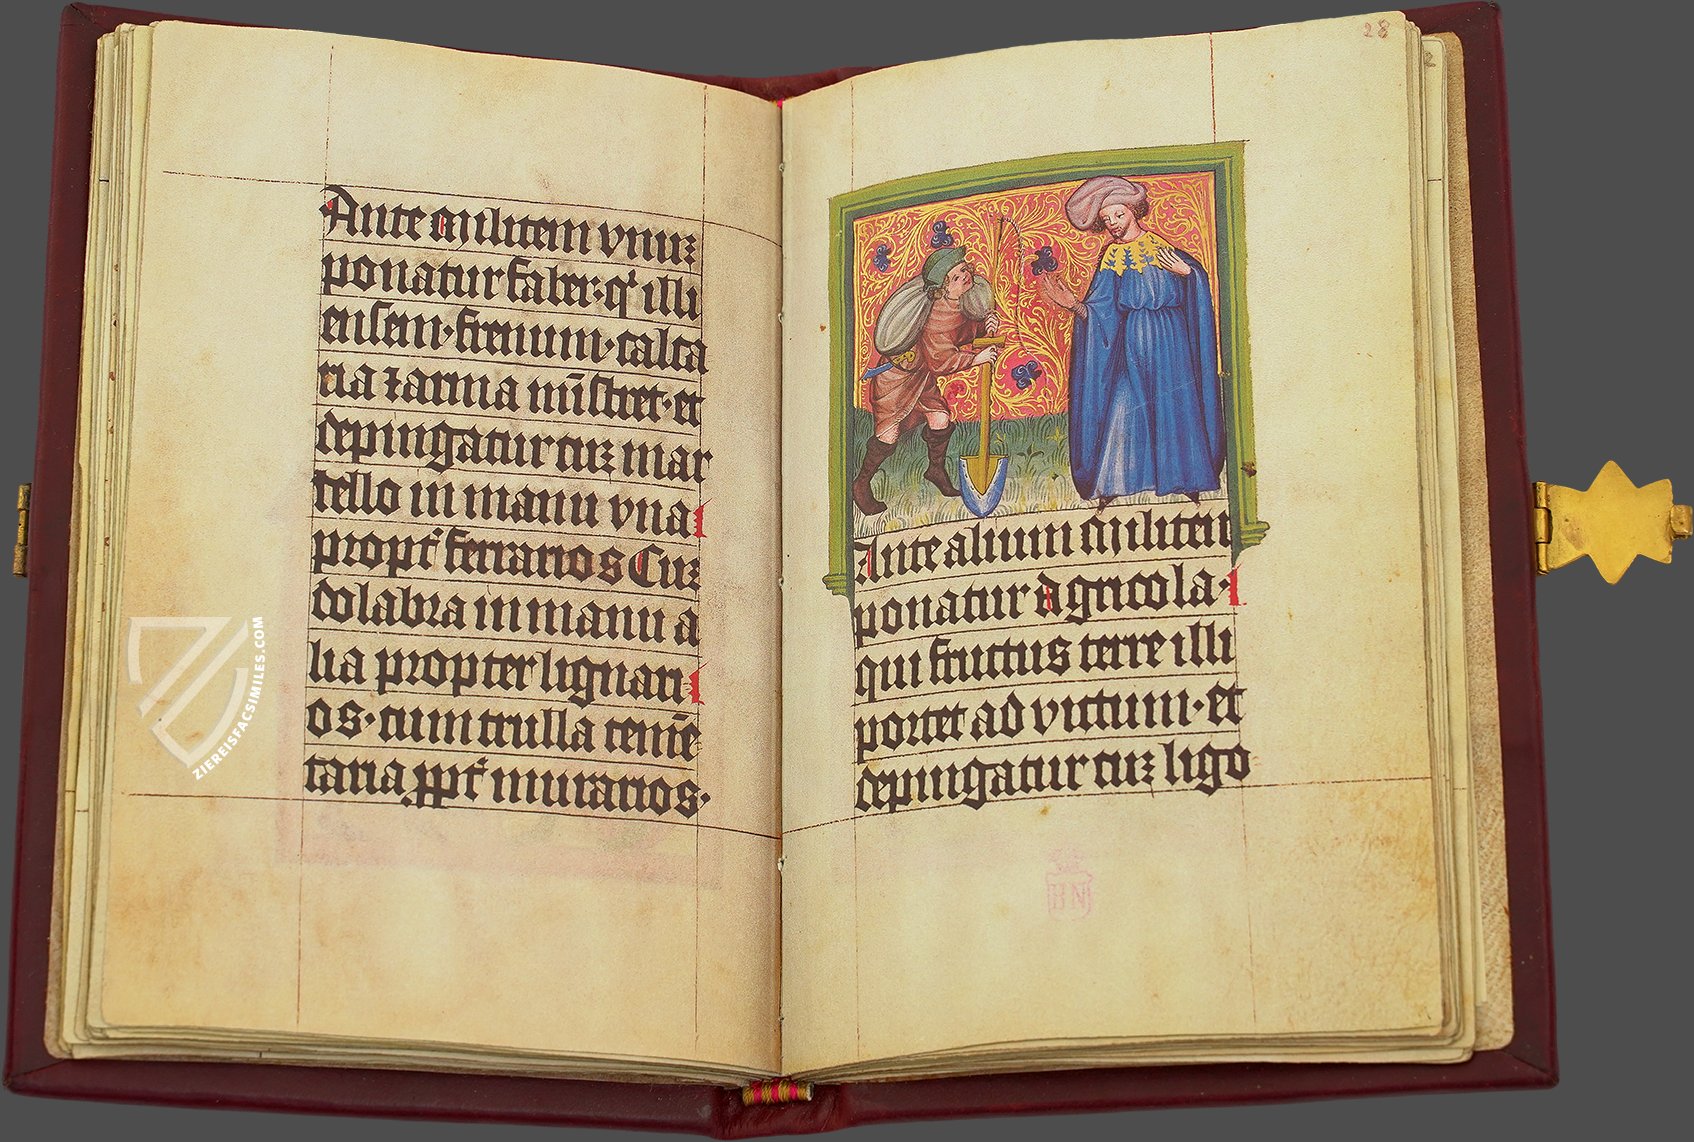 Ante Militem vnuz
ponatur faber·q' illi
ensem·frenum·calca
ria ⁊arma mīstret·et
depingatur cuz mar
tello in manu vna
propt' ferrarios Cuz
dolabra in manu a
lia propter lignari
os·cum trulla cemē
taria ꝓpt' murarios·
28
Ante alium Militem
ponatur Agricola·
qui fructus terre illi
portet ad victum·et
depingatur cuz ligo
BN
2
ZIEREISFACSIMILES.COM